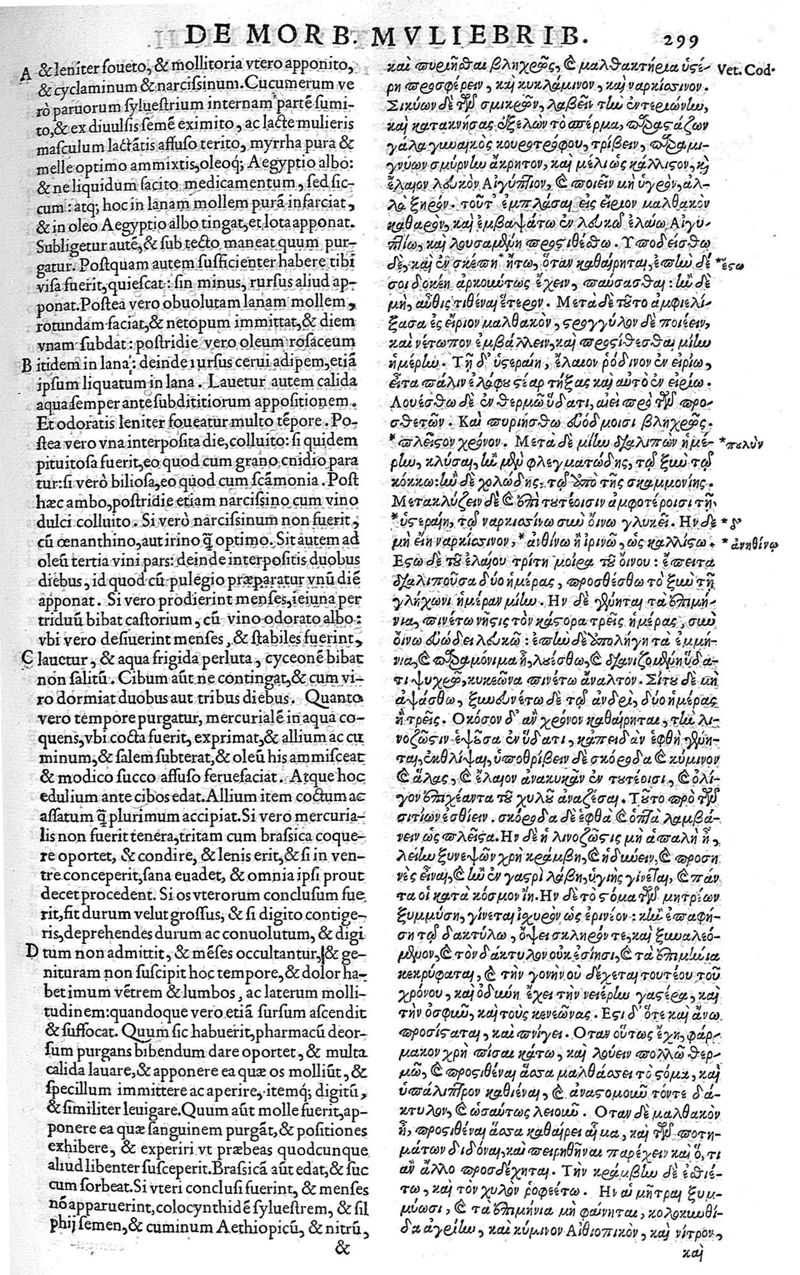 DE MORB. MVLIEBRIB. 299
A & leniter foueto, & mollitoria vtero apponito,
& cyclaminum & narcissinum. Cucumerum ve
rò paruorum syluestrium internam partẽ sumi-
to, & ex diuulsis semẽ eximito, ac lacte mulieris
masculum lactãtis affuso terito, myrrha pura &
melle optimo ammixtis, oleoq; Aegyptio albo:
& ne liquidum facito medicamentum, sed sic-
cum: atq; hoc in lanam mollem purã infarciat,
& in oleo Aegyptio albo tingat, et lota apponat.
Subligetur autẽ, & sub tecto maneat quum pur-
gatur. Postquam autem sufficienter habere tibi
visa fuerit, quiescat: sin minus, rursus aliud ap-
ponat. Postea vero obuolutam lanam mollem,
rotundam faciat, & netopum immittat, & diem
vnam subdat: postridie vero oleum rosaceum
B itidem in lana: deinde rursus cerui adipem, etiã
ipsum liquatum in lana. Lauetur autem calida
aqua semper ante subdititiorum appositionem.
Et odoratis leniter foueatur multo tẽpore. Po-
stea vero vna interposita die, colluito: si quidem
pituitosa fuerit, eo quod cum grano cnidio para
tur: si verò biliosa, eo quod cum scãmonia. Post
hæc ambo, postridie etiam narcissino cum vino
dulci colluito. Si verò narcissinum non fuerit,
cũ œnanthino, aut irino q̃ optimo. Sit autem ad
oleũ tertia vini pars: deinde interpositis duobus
diebus, id quod cũ pulegio præparatur vnũ diẽ
apponat. Si vero prodierint menses, ieiuna per
triduũ bibat castorium, cũ vino odorato albo:
vbi vero desiuerint menses, & stabiles fuerint,
C lauetur, & aqua frigida perluta, cyceonẽ bibat
non salitũ. Cibum aũt ne contingat, & cum vi-
ro dormiat duobus aut tribus diebus. Quanto
vero tempore purgatur, mercurialẽ in aqua co-
quens, vbi cocta fuerit, exprimat, & allium ac cu
minum, & salem subterat, & oleũ his ammisceat
& modico succo affuso feruefaciat. Atque hoc
edulium ante cibos edat. Allium item coctum ac
assatum q̃ plurimum accipiat. Si vero mercuria-
lis non fuerit tenera, tritam cum brassica coque-
re oportet, & condire, & lenis erit, & si in ven-
tre conceperit, sana euadet, & omnia ipsi prout
decet procedent. Si os vterorum conclusum fue
rit, fit durum velut grossus, & si digito contige-
ris, deprehendes durum ac conuolutum, & digi
D tum non admittit, & mẽses occultantur, & ge-
nituram non suscipit hoc tempore, & dolor ha-
bet imum vẽtrem & lumbos, ac laterum molli-
tudinem: quandoque vero etiã sursum ascendit
& suffocat. Quum sic habuerit, pharmacũ deor-
sum purgans bibendum dare oportet, & multa
calida lauare, & apponere ea quæ os molliũt, &
specillum immittere ac aperire, itemq; digitũ,
& similiter leuigare. Quum aũt molle fuerit, ap-
ponere ea quæ sanguinem purgãt, & potiones
exhibere, & experiri vt præbeas quodcunque
aliud libenter susceperit. Brassicã aũt edat, & suc
cum sorbeat. Si vteri conclusi fuerint, & menses
nõ apparuerint, colocynthidẽ syluestrem, & sil
phij semen, & cuminum Aethiopicũ, & nitrũ,
&
καὶ πυριῆσθαι βληχρῶς, καὶ μαλθακτήρια ὑστέ- Vet. Cod.
ρη προσφέρειν, καὶ κυκλάμινον, καὶ ναρκίσσινον.
Σικύων δὲ τῶν σμικρῶν, λαβεῖν τὴν ἐντεριώνην,
καὶ κατακνήσας ἐξελὼν τὸ σπέρμα, παραστάζων
γάλα γυναικὸς κουροτρόφου, τρίβειν, παραμι-
γνύων σμύρνην ἄκρητον, καὶ μέλιως κάλλιστον, καὶ
ἔλαιον λευκὸν Αἰγύπτιον, καὶ ποιεῖν μὴ ὑγρὸν, ἀλ-
λὰ ξηρόν. τοῦτ' ἐμπλάσαι εἰς εἴριον μαλθακὸν
καθαρὸν, καὶ ἐμβαψάτω ἐν λευκῷ ἐλαίῳ Αἰγυ-
πτίῳ, καὶ λουσαμένη προστιθέσθω. Υποδείσθω
δὲ, καὶ ἐν σκέπῃ* ἤτω, ὅταν καθαίρηται, ἐπὴν δέ *ἔστω
σοι δοκέῃ ἀρκούντως ἔχειν, παυσάσθαι: ἢν δὲ
μὴ, αὖθις τιθέναι ἕτερον. Μετὰ δὲ τοῦτο ἀμφιελί-
ξασα ἐς εἴριον μαλθακὸν, στρογγύλον δὲ ποιέειν,
καὶ νέτωπον ἐμβάλλειν, καὶ προστίθεσθαι μίην
ἡμέρην. Τῇ δ' ὑστεραίῃ, ἔλαιον ῥόδινον ἐν εἰρίῳ,
εἶτα πάλιν ἐλάφου στέαρ τήξας καὶ αὐτὸ ἐν εἰρίῳ.
Λουέσθω δὲ ἐν θερμῷ ὕδατι, αἰεὶ πρὸ τῶν προσ-
θετῶν. Καὶ πυριήσθω εὐόδμοισι βληχρῶς,
*πλεῖστον χρόνον. Μετὰ δὲ μίην διαλιπὼν ἡμέ- *πουλὺν
ρην, κλύσαι, ἢν μὲν φλεγματώδης, τῷ ξὺν τῷ
κόκκῳ: ἢν δὲ χολώδης, τῷ ὑπὸ τῆς σκαμμονίης.
Μετακλύζειν δὲ καὶ ἐπὶ τουτέοισιν ἀμφοτέροισι τῇ
*ὑστεραίῃ, τῷ ναρκισσίνῳ σὺν οἴνῳ γλυκεῖ. Ην δὲ *δ'
μὴ εἴη ναρκίσσινον, *ἀνθίνῳ ἢ ἰρινῷ, ὡς καλλίστῳ. *ἀνηθίνῳ
Εστω δὲ τοῦ ἐλαίου τρίτη μοῖρα τοῦ οἴνου: ἔπειτα
διαλιποῦσα δύο ἡμέρας, προσθέσθω τὸ ξὺν τῇ
γλήχωνι ἡμέραν μίην. Ην δὲ γένηται τὰ ἐπιμή-
νια, πινέτω νῆστις τὸν κάστορα τρεῖς ἡμέρας, σὺν
οἴνῳ εὐώδει λευκῷ: ἐπὴν δὲ ὑπολήγῃ τὰ ἐμμή-
νια, καὶ παραμόνιμα ᾖ, λούσθω, καὶ διανιζομένη ὕδα-
τι ψυχρῷ, κυκεῶνα πινέτω ἄναλτον. Σίτου δὲ μὴ
ἁψάσθω, ξυνευνέτω δὲ τῷ ἀνδρὶ, δύο ἡμέρας
ἢ τρεῖς. Οκόσον δ' ἂν χρόνον καθαίρηται, τὴν λι-
νόζωστιν ἑψῶσα ἐν ὕδατι, κἀπειδὰν ἑφθὴ γένη-
ται, ἐκθλίψαι, ὑποθρίβειν δὲ σκόροδα καὶ κύμινον
καὶ ἅλας, καὶ ἔλαιον ἀνακυκᾶν ἐν τουτέοισι, καὶ ὀλί-
γον ἐπιχέαντα τοῦ χυλοῦ ἀναζέσαι. Τοῦτο πρὸ τῶν
σιτίων ἐσθίειν. σκόροδα δὲ ἑφθὰ καὶ ὀπτὰ λαμβά-
νειν ὡς πλεῖστα. Ην δὲ ἡ λινόζωστις μὴ ἁπαλὴ ᾖ,
λείην ξυνεψῶν χρὴ κράμβῃ, καὶ ἡδύνειν, καὶ προση
νὲς εἶναι, καὶ ἢν ἐν γαστρὶ λάβῃ, ὑγιὴς γίνεται, καὶ πάν
τα οἱ κατὰ κόσμον ἴῃ. Ην δὲ τὸ στόμα τῶν μητρέων
ξυμμύσῃ, γίνεται ἰσχυρὸν ὡς ἐρινεόν: κἢν ἐπαφή-
σῃ τῷ δακτύλῳ, ὄψει σκληρόν τε, καὶ ξυναλεό-
μενον, καὶ τὸν δάκτυλον οὐκ ἐσίησι, καὶ τὰ ἐπιμήνια
κεκρύφαται, καὶ τὴν γονὴν οὐ δέχεται τουτέου τοῦ
χρόνου, καὶ ὀδύνη ἔχει τὴν νειέρην γαστέρα, καὶ
τὴν ὀσφὺν, καὶ τοὺς κενεῶνας. Εστι δ' ὅτε καὶ ἄνω
προσίσταται, καὶ πνίγει. Οταν οὕτως ἔχῃ, φάρ-
μακον χρὴ πίσαι κάτω, καὶ λούειν πολλῷ θερ-
μῷ, καὶ προστιθέναι ἅσσα μαλθάσσει τὸ στόμα, καὶ
ὑπάλειπτρον καθιέναι, καὶ ἀναστομοῦν τόντε δά-
κτυλον, καὶ ὡσαύτως λειοῦν. Οταν δὲ μαλθακὸν
ᾖ, προστιθέναι ἅσσα καθαίρει αἷμα, καὶ τῶν ποτη-
μάτων διδόναι, καὶ πειρηθῆναι παρέχειν καὶ ὅ, τι
ἂν ἄλλο προσδέχηται. Τὴν κράμβην δὲ ἐσθιέ-
τω, καὶ τὸν χυλὸν ῥοφεέτω. Ην αἱ μῆτραι ξυμ-
μύωσι, καὶ τὰ ἐπιμήνια μὴ φαίνηται, κολοκυνθί-
δα ἀγρίην, καὶ κύμινον Αἰθιοπικὸν, καὶ νίτρον,
καὶ